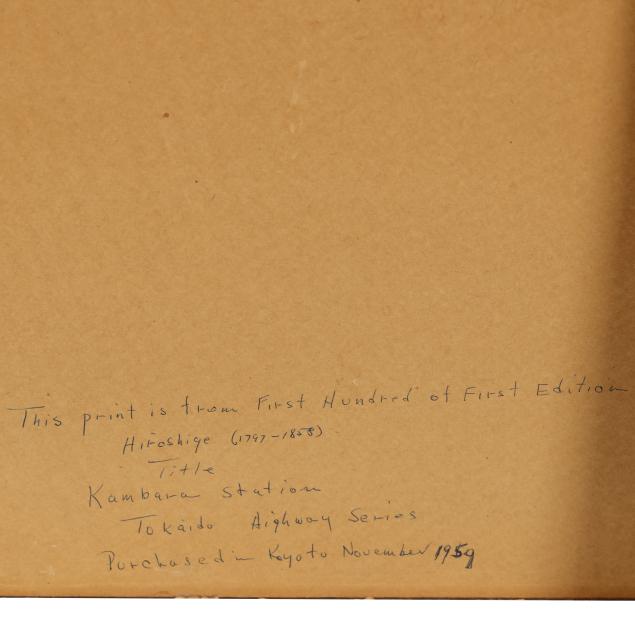 This print is from First Hundred of First Edition
Hiroshige (1797-1858)
Title
Kambara Station
Tokaido Highway Series
Purchased in Kyoto November 1959